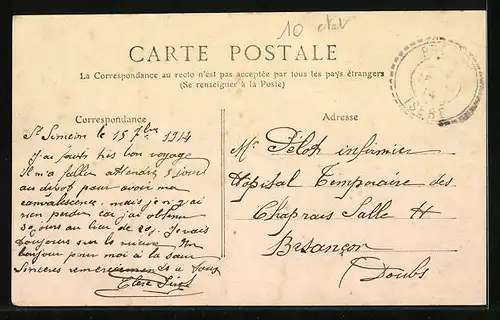 10 
CARTE POSTALE
La Correspondance au recto n'est pas acceptée par tous les pays étrangers
(Se renseigner à la Poste)
Correspondance
Adresse
St Simeon le 15 7bre 1914
J'ai fait très bon voyage
Il m'a fallu attendre 5 jours
au dépot pour avoir ma
convalescence. mais je n'y ai
rien perdu car j'ai obtenu
30 jours au lieu de 20. Je vais
toujours sur le mieux Un
bonjour pour moi à la sœur
Sinceres remerciements à tous
Mr Pélot infirmier
Hôpital Temporaire des
Chaprais Salle H
Besançon
Doubs
ISERE